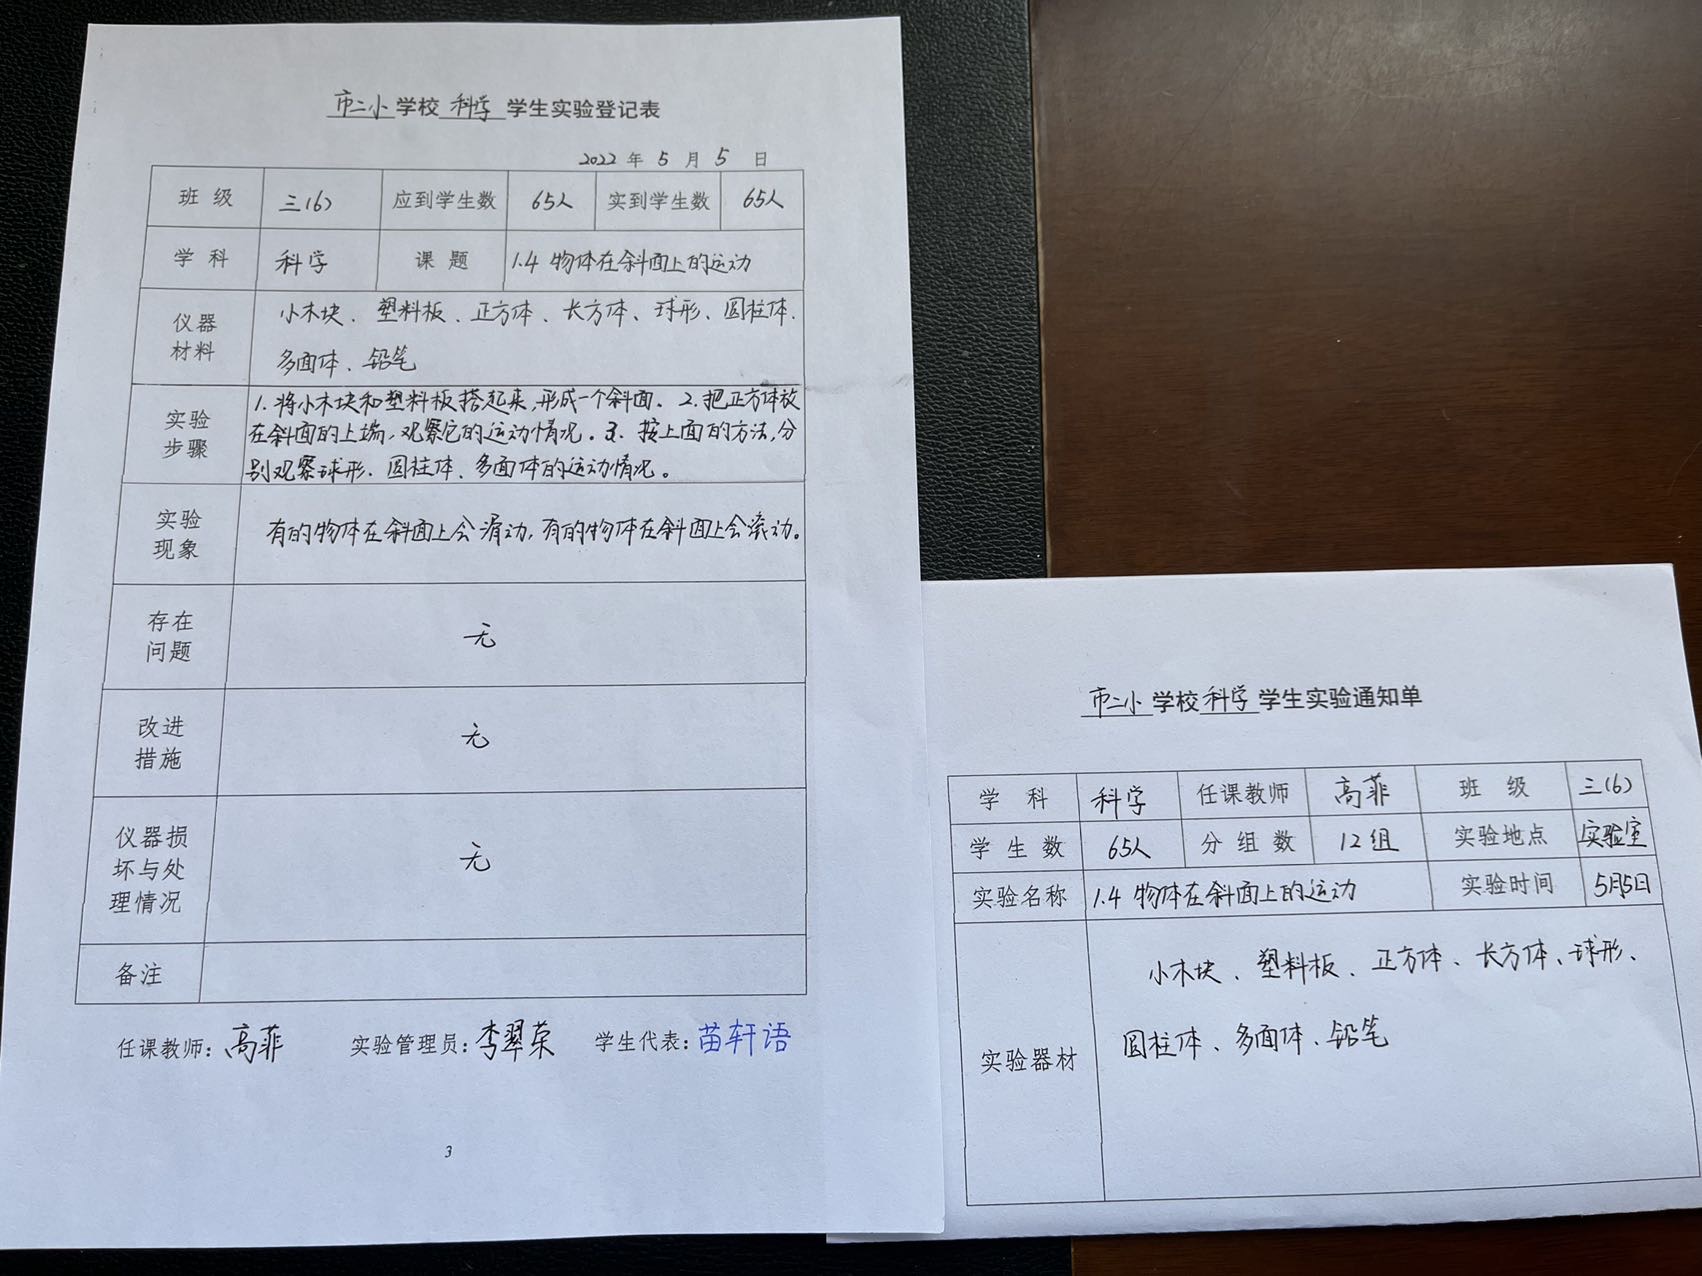 市二小学校 科学 学生实验登记表
2022 年 5 月 5 日
班 级 三(6) 应到学生数 65人 实到学生数 65人
学 科 科学 课 题 1.4 物体在斜面上的运动
仪器
材料
小木块、塑料板、正方体、长方体、球形、圆柱体、
多面体、铅笔
实验
步骤
1. 将小木块和塑料板搭起来,形成一个斜面、2. 把正方体放
在斜面的上端,观察它的运动情况。3、按上面的方法,分
别观察球形、圆柱体、多面体的运动情况。
实验
现象
有的物体在斜面上会滑动,有的物体在斜面上会滚动。
存在
问题
无
改进
措施
无
仪器损
坏与处
理情况
无
备注
任课教师: 高菲 实验管理员: 李翠荣 学生代表: 苗轩语
3
市二小学校 科学 学生实验通知单
学 科 科学 任课教师 高菲 班 级 三(6)
学 生 数 65人 分 组 数 12组 实验地点 实验室
实验名称 1.4 物体在斜面上的运动 实验时间 5月5日
实验器材
小木块、塑料板、正方体、长方体、球形、
圆柱体、多面体、铅笔